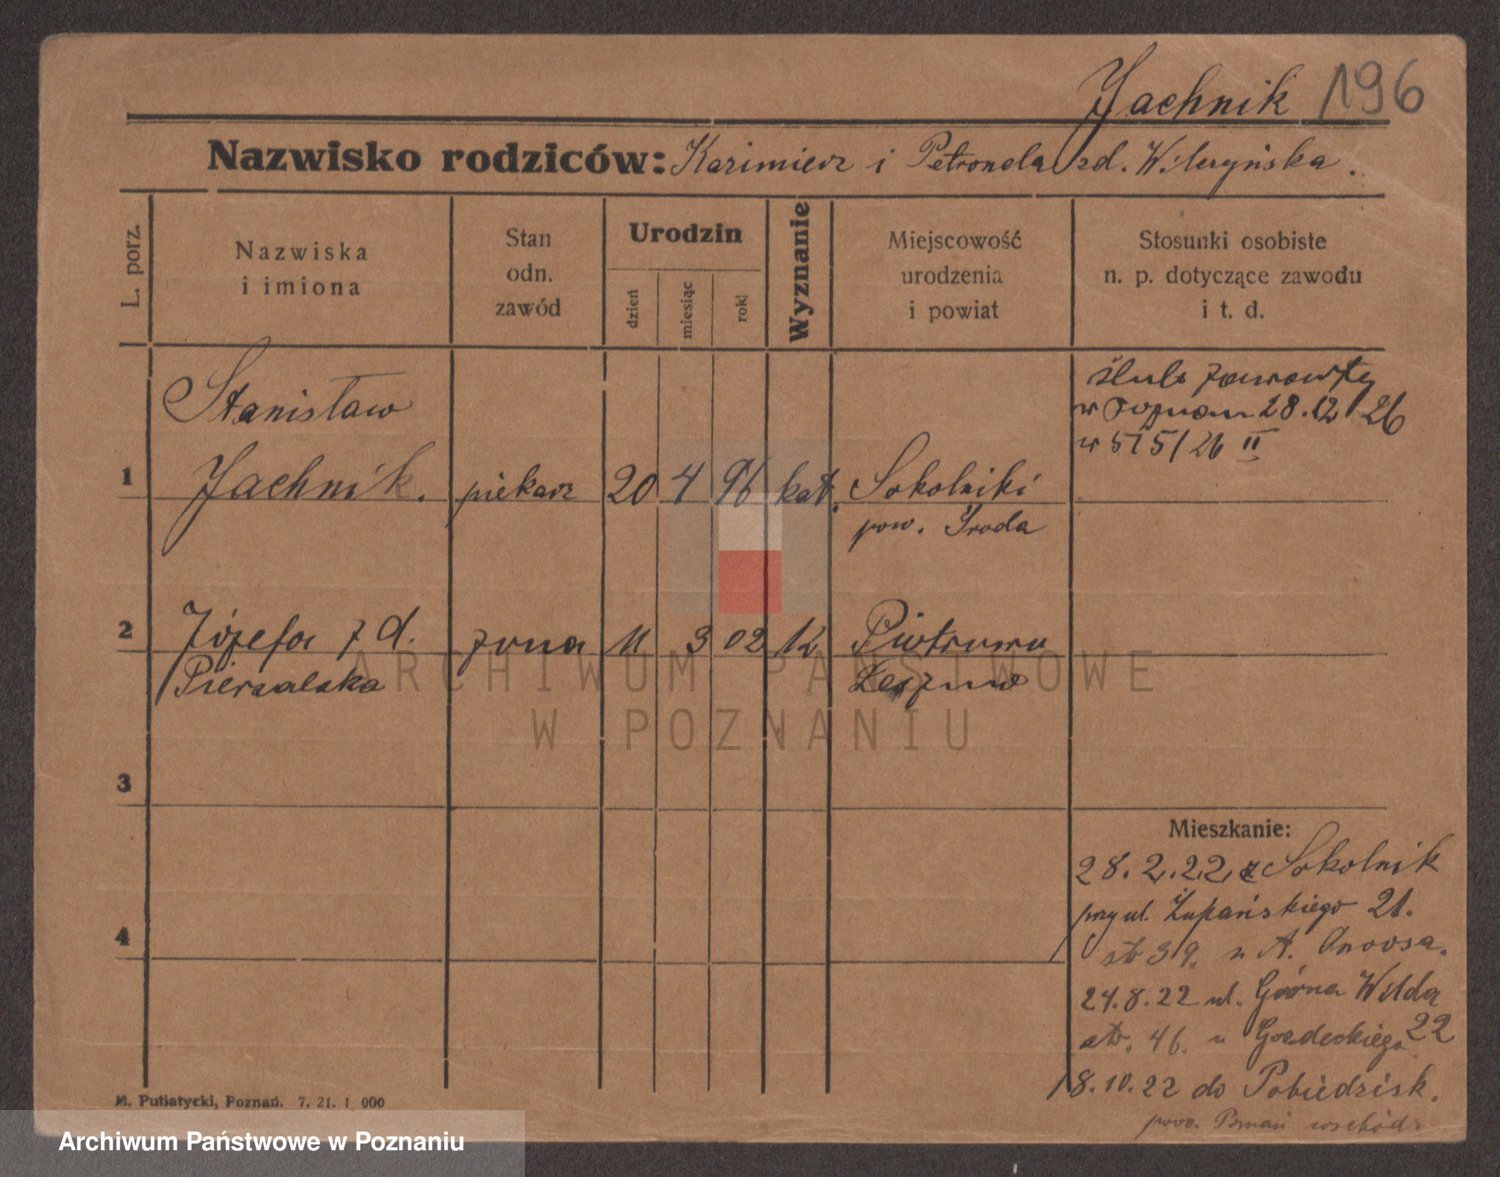 Jachnik 196
Nazwisko rodziców: Kazimierz i Petronela zd. Wilczyńska.
L. porz.
Nazwiska
i imiona
Stan
odn.
zawód
Urodzin
dzień
miesiąc
rok
Wyznanie
Miejscowość
urodzenia
i powiat
Stosunki osobiste
n. p. dotyczące zawodu
i t. d.
ślub zawarty
w Poznaniu 28.12/26
w 575/26 II
Stanisław
1 Jachnik. piekarz 20 4 96 kat. Sokolniki
pow. Środa
2 Józefa z d. żona 11 3 02 k
Pierzalska Leszno
3
Mieszkanie:
28.2.22 z Sokolnik
przy ul. Żupańskiego 21.
4
st 39. u A.
24.8.22 ul. Górna Wilda 22
str. 46. u Gozdeckiego
8.10.22 do Pobiedzisk.
pow. Poznań wschód.
M. Putiatycki, Poznań. 7. 21. 1 000
ARCHIWUM PAŃSTWOWE
W POZNANIU
Archiwum Państwowe w Poznaniu